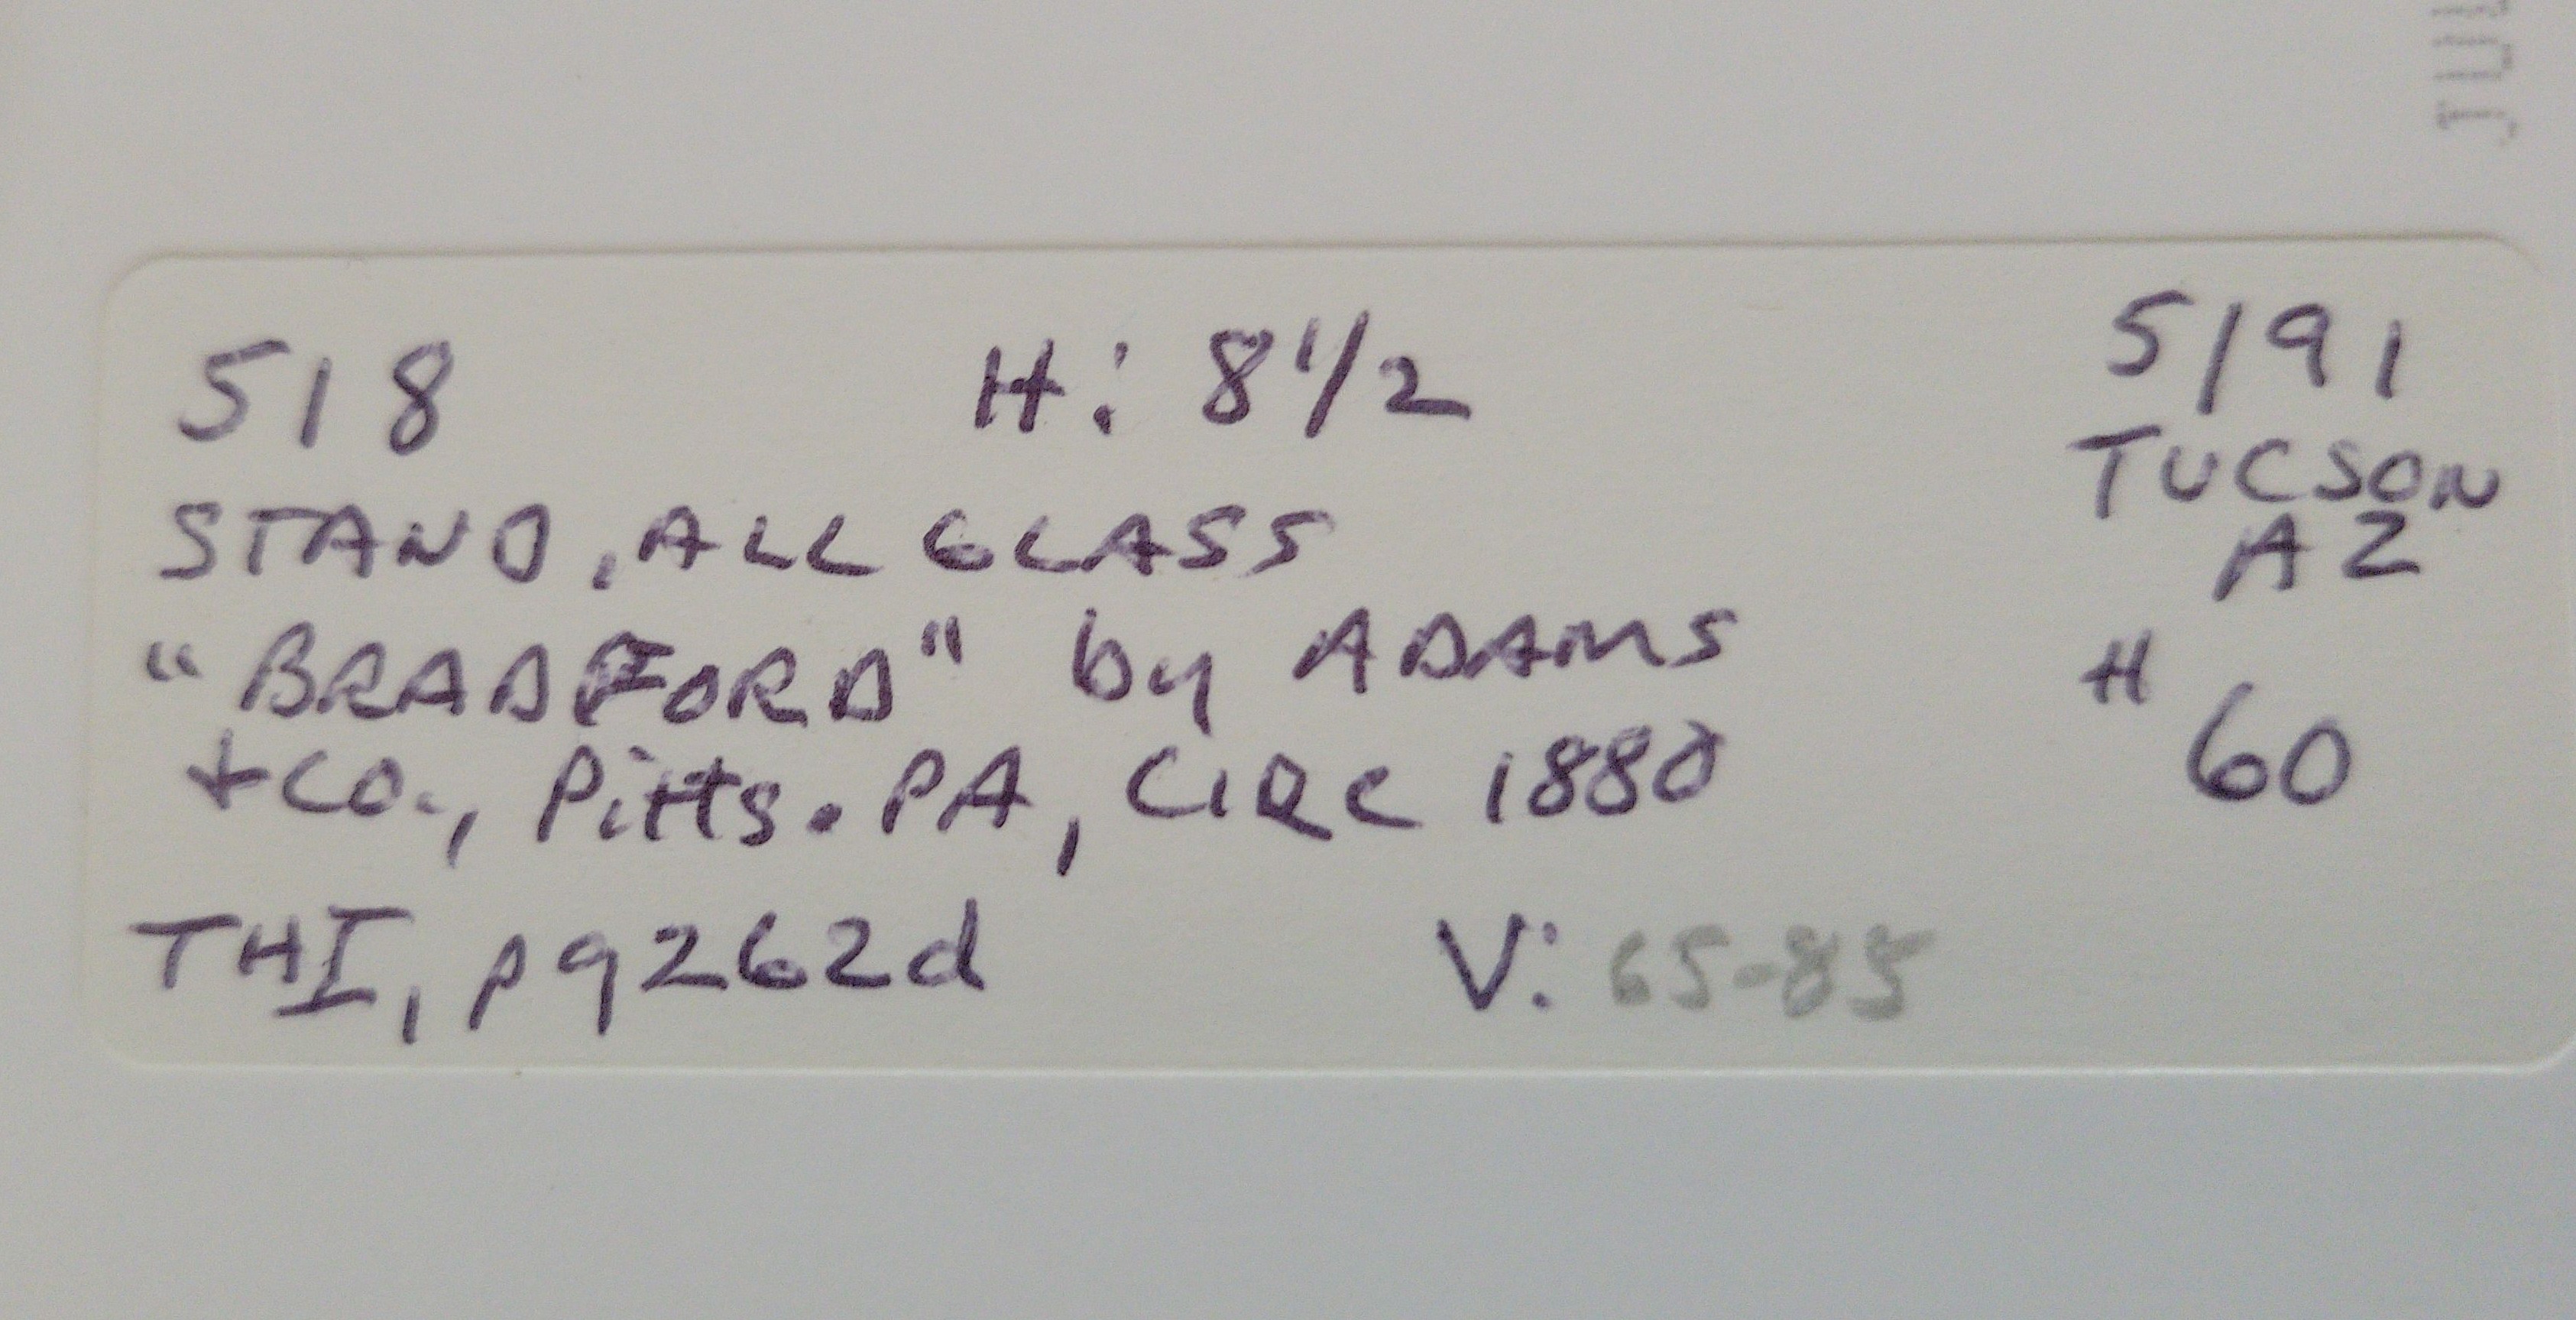 518 H: 8 1/2 5/91
TUCSON
STAND, ALL GLASS AZ
"BRADFORD" by ADAMS # 60
+ CO., Pitts. PA, CIRC 1880
THI, pg 262d V: 65-85